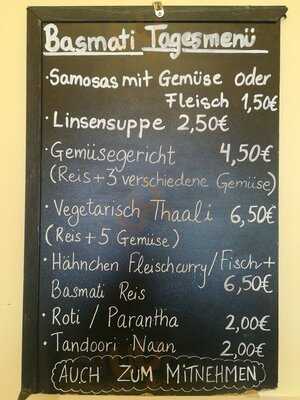 Basmati Tagesmenü
· Samosas mit Gemüse oder
Fleisch 1,50€
· Linsensuppe 2,50€
· Gemüsegericht 4,50€
(Reis + 3 verschiedene Gemüse)
· Vegetarisch Thaali 6,50€
(Reis + 5 Gemüse)
· Hähnchen Fleischcurry/Fisch +
Basmati Reis 6,50€
· Roti / Parantha 2,00€
· Tandoori Naan 2,00€
AUCH ZUM MITNEHMEN